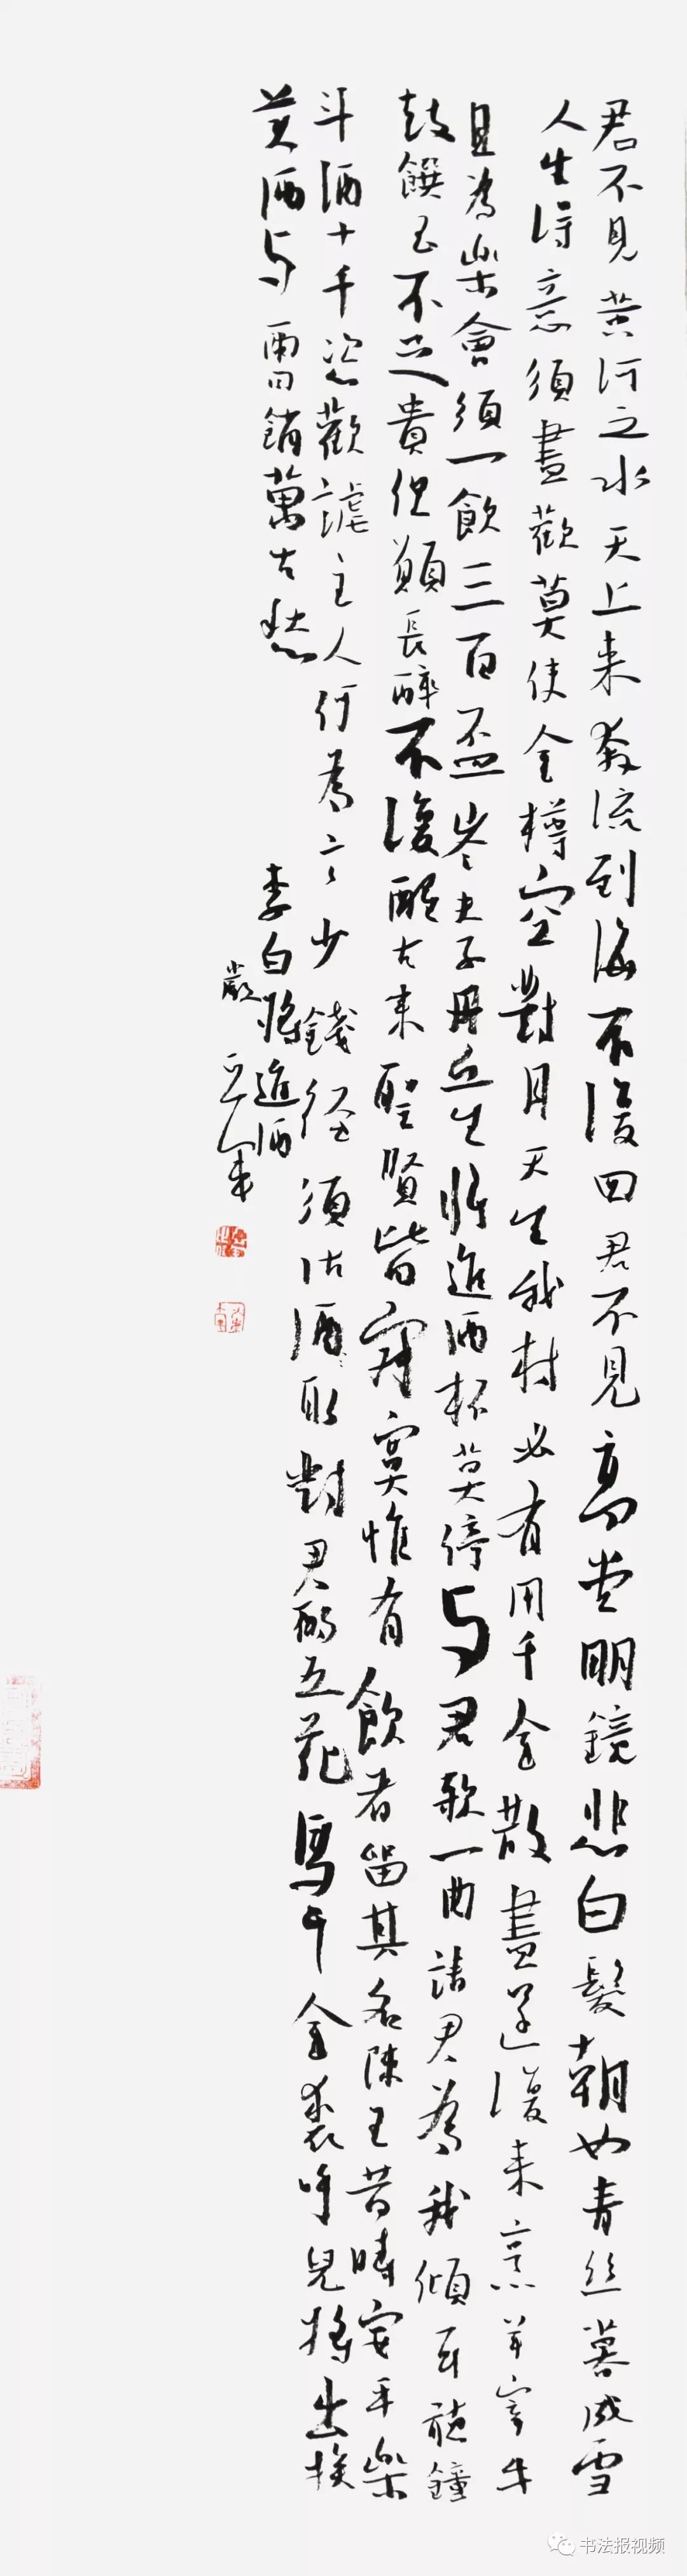 君不見黃河之水天上来奔流到海不復回君不見高堂明鏡悲白髮朝如青丝暮成雪
人生得意須盡歡莫使金樽空對月天生我材必有用千金散盡還復来烹羊宰牛
且為樂會須一飲三百盃岑夫子丹丘生將進酒杯莫停与君歌一曲請君為我傾耳聽鐘
鼓饌玉不足貴但願長醉不復醒古来聖賢皆寂寞惟有飲者留其名陳王昔時宴平樂
斗酒十千恣歡謔主人何為言少錢徑須沽酒取對君酌五花馬千金裘呼兒將出換
美酒与爾銷萬古愁
李白將進酒
嚴
书法报视频